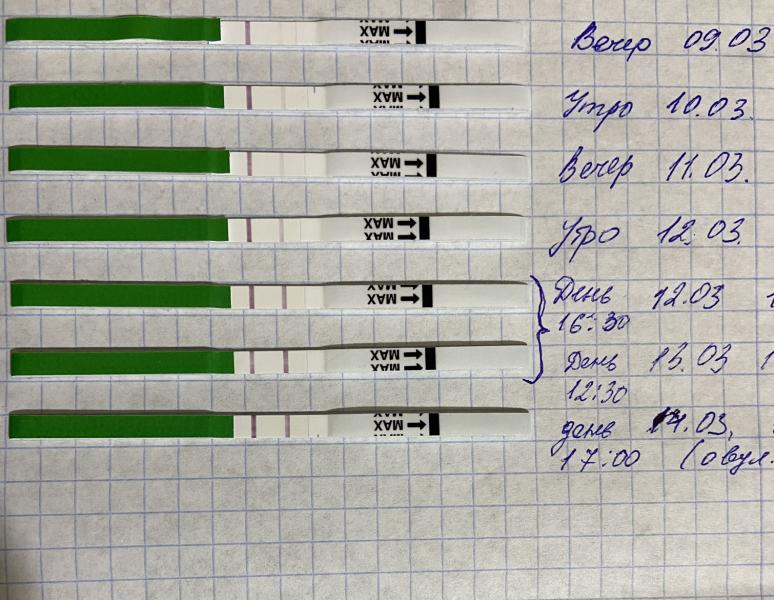 MAX
Вечер 09.03
MAX
Утро 10.03.
MAX
Вечер 11.03.
MAX
Утро 12.03.
MAX
День 12.03
16:30
MAX
День 13.03
12:30
MAX
день 14.03.
17:00 (овул.